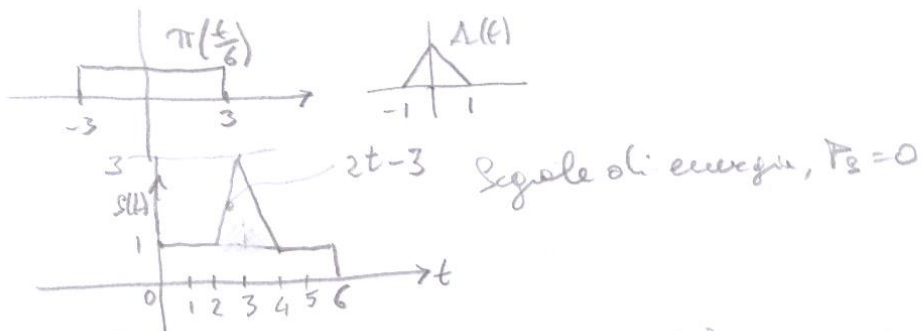 π(t/6)
Λ(t)
-3 3
-1 1
3
2t-3
Segnale di energia, Ps=0
s(t)
1
t
0 1 2 3 4 5 6